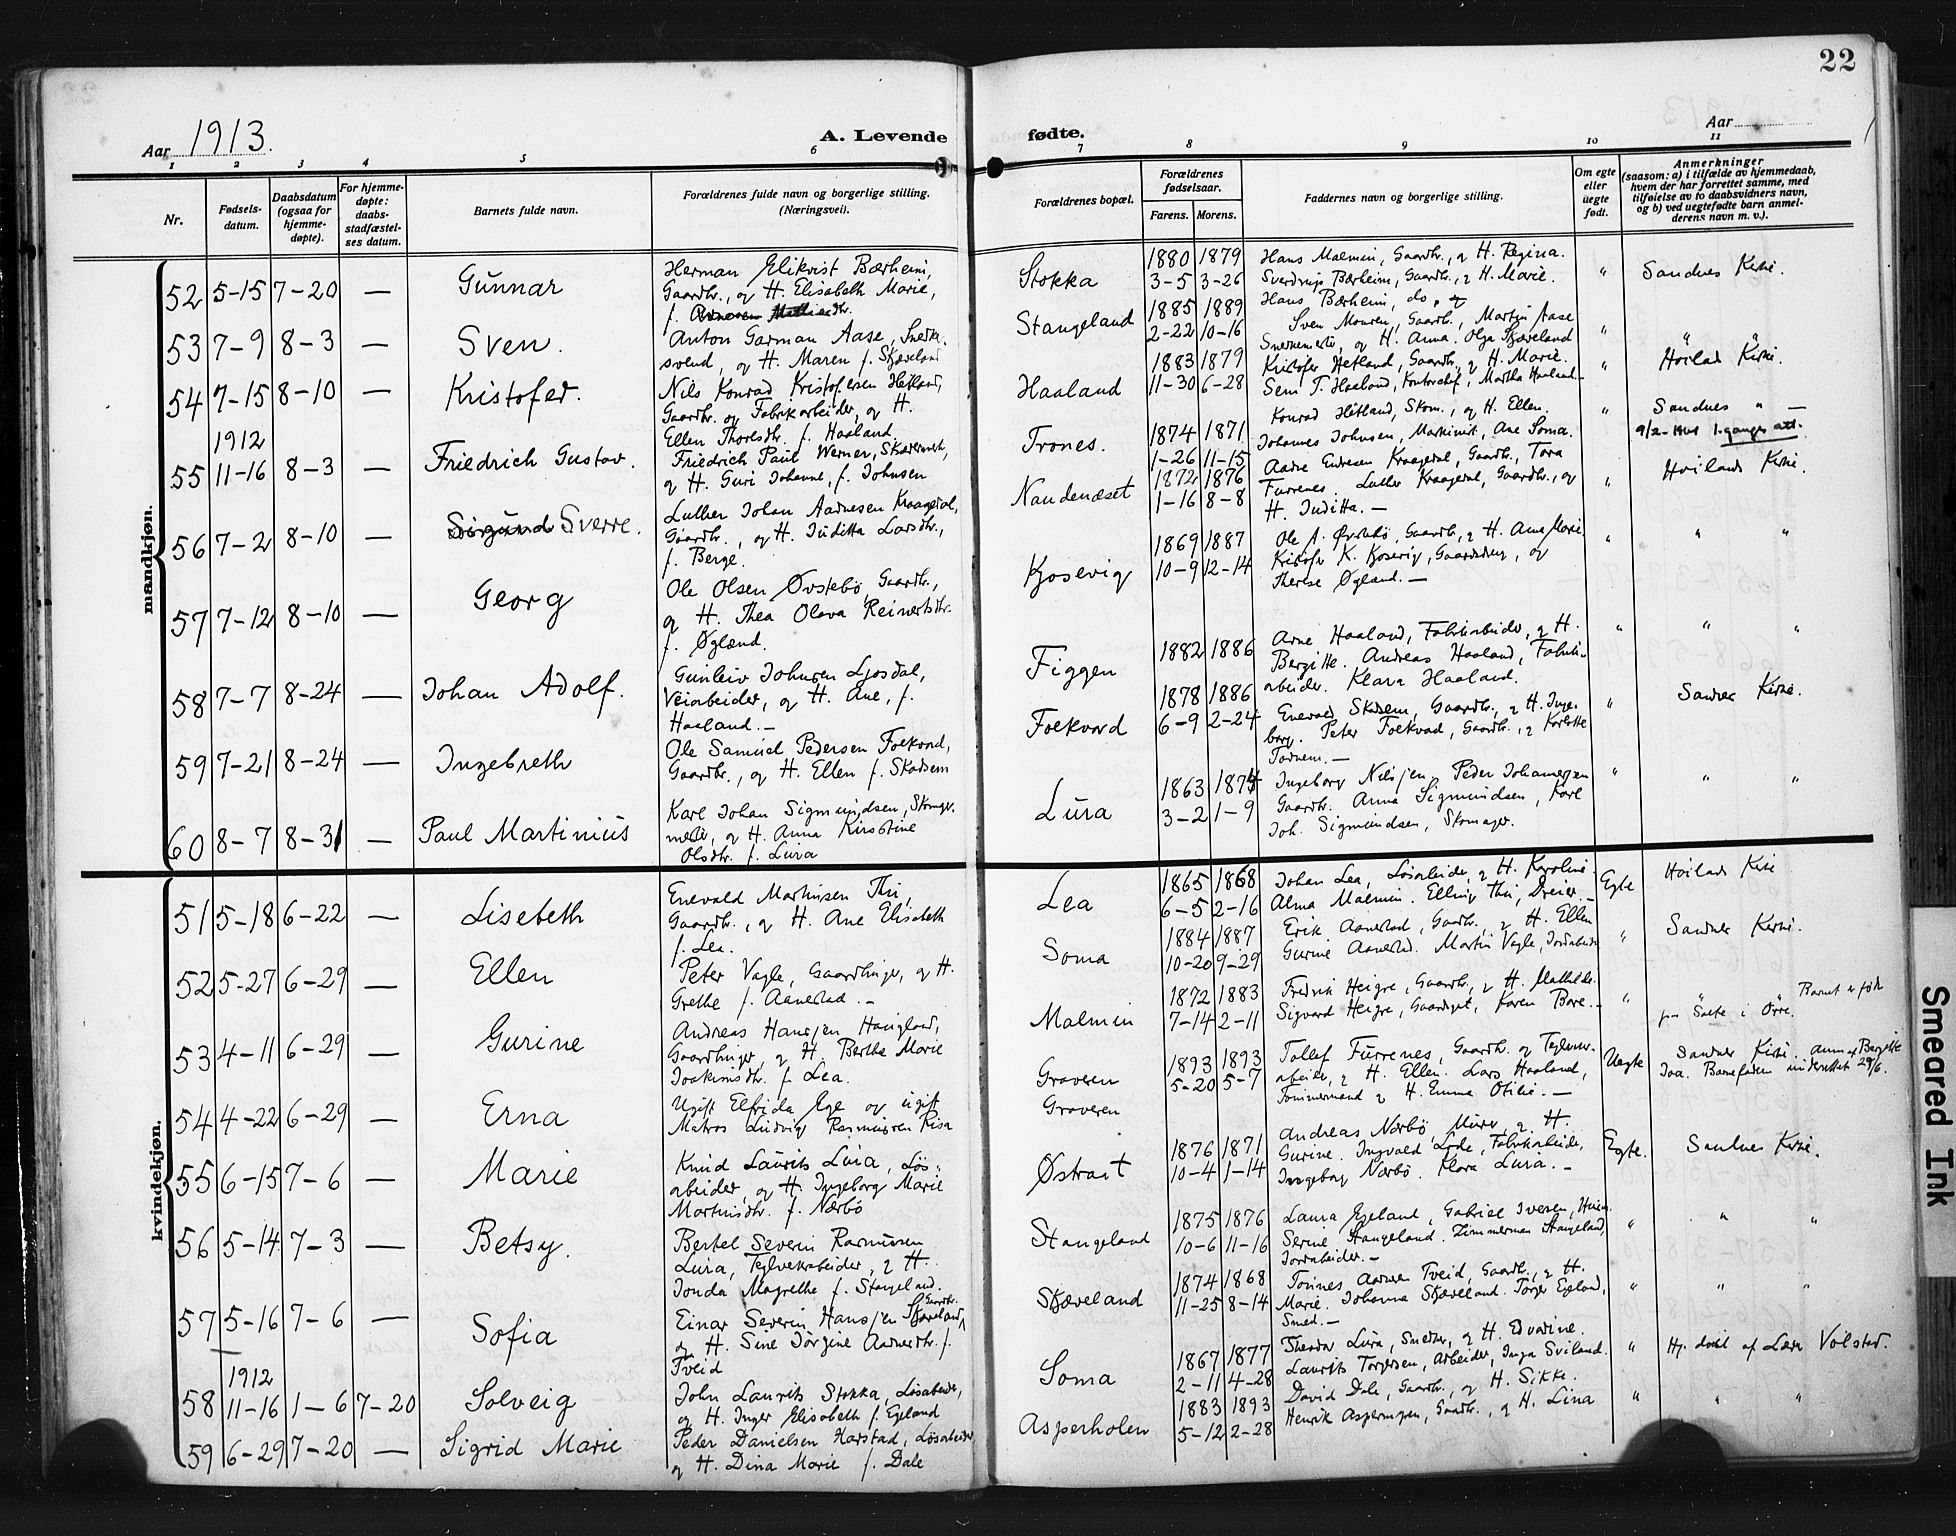 22
Aar 1913.
A. Levende fødte.
Aar
1 2 3 4 5 6 7 8 9 10 11
Nr.
Fødsels-
datum.
Daabsdatum
(ogsaa for
hjemme-
døpte).
For hjemme-
døpte:
daabs-
stadfæstel-
ses datum.
Barnets fulde navn.
Forældrenes fulde navn og borgerlige stilling.
(Næringsvei).
Forældrenes bopæl.
Forældrenes
fødselsaar.
Farens. Morens.
Faddernes navn og borgerlige stilling.
Om egte
eller
uegte
født.
Anmerkninger
(saasom: a) i tilfælde av hjemmedaab,
hvem der har forrettet samme, med
tilføielse av to daabsvidners navn,
og b) ved uegtefødte barn anmel-
derens navn m. v.).
mandkjøn.
52 5-15 7-20 — Gunnar
Herman Elikvist Bærheim,
Gaardbr., og H. Elisabeth Marie,
Stokka
1880 1879
3-5 3-26
Hans Malmin, Gaardbr., og H. Regina.
Sverdrup Bærheim, Gaardbr., og H. Marie.
Hans Bærheim, do.
" Sandnes Kirke.
53 7-9 8-3 — Sven.
Anton Garman Aase, Snedk.
svend, og H. Maren f. Skjæveland
Stangeland
1885 1889
2-22 10-16
Sven Gaardb., Martin Aase
og H. Anna. Olga Skjæveland
" " "
54 7-15 8-10 — Kristofer.
Nils Konrad Kristofersen Hetland,
Gaardbr. og Fabrikarbeider, og H.
Ellen Thoresdtr. f. Haaland.
Haaland
1883 1879
11-30 6-28
Kristofer Hetland, Gaardbr., og H. Marie.
Sem T. Haaland, Kontorchef, Martha Haaland.
" Höiland Kirke.
1912
55 11-16 8-3 — Friedrich Gustav.
Friedrich Paul Werner, Skræderm.,
og H. Guri Johanne, f. Johnsen
Trones.
1874 1871
1-26 11-15
Konrad Hetland, Skom., og H. Ellen.
Johannes Johnsen, Maskinist, Ane Soma.
" Sandnes " —
1. gangs att.
56 7-2 8-10 — Sigund Sverre.
Luther Johan Aadnesen Kraagedal,
Gaardbr., og H. Juditta Larsdtr.,
f. Berge.
Naudenæset
1872 1876
1-16 8-8
Aadne Endresen Kraagedal, Gaardbr., Tora
Furrenes. Luther Kraagedal, Gaardbr., og
H. Juditta. —
" Höiland Kirke.
57 7-12 8-10 — Georg
Ole Olsen Øvstebø, Gaardbr.,
og H. Thea Olava Reinertsdtr.
f. Øglænd.
Kjosevig
1869 1887
10-9 12-14
Ole A. Øvstebø, Gaardbr., og H. Ane Marie.
Kristofer K. Kjosevig, Gaardsdreng, og
Therese Øgland. —
" " "
58 7-7 8-24 — Johan Adolf.
Gunleiv Johnsen Ljosdal,
Veiarbeider, og H. Ane, f.
Haaland. —
Figgen
1882 1886
Arne Haaland, Fabrikarbeider, og H.
Bergitte. Andreas Haaland, Fabrik-
arbeider. Klara Haaland.
" " "
59 7-21 8-24 — Ingebreth
Ole Samuel Pedersen Foekvord,
Gaardbr., og H. Ellen f. Skadsem
Foekvord
1878 1886
6-9 2-24
Enevald Skadsem, Gaardbr., og H. Inge-
borg. Peter Foekvad, Gaardbr., og Karlotte
Todnem. —
" Sandnes Kirke.
60 8-7 8-31 — Paul Martinius
Karl Johan Sigmundsen, Skomager-
mester, og H. Anna Kirstine
Olsdtr. f. Lura
Lura
1863 1874
3-2 1-9
Ingeborg Nilsjen, Peder Johannesen
Gaardbr. Anna Sigmundsen, Karl
Joh. Sigmundsen, Skomager.
" " "
kvindekjøn.
51 5-18 6-22 — Lisebeth
Enevald Martinsen Thu,
Gaardbr., og H. Ane Elisebeth
f. Lea.
Lea
1865 1868
6-5 2-16
Johan Lea, Løsarbeider, og H. Karoline.
Alma Malmin. Elling Thu, Dreier. —
Egte Höiland Kirke
52 5-27 6-29 — Ellen
Peter Vagle, Gaardbruger, og H.
Grethe f. Aanestad. —
Soma
1884 1887
10-20 9-29
Erik Aanestad, Gaardbr., og H. Ellen
Gurine Aanestad. Martin Vagle, Jordarbeider
" Sandnes Kirke.
53 4-11 6-29 — Gurine
Andreas Hansjen Haugland,
Gaardbruger, og H. Berthe Marie
Joakimsdtr. f. Lea.
Malmin
1872 1883
7-14 2-11
Fredrik Heigre, Gaardbr., og H. Mathilde.
Sigvard Heigre, Gaardsgut, Karen Bore. —
" " Barnet er født
paa Salte i Orre.
54 4-22 6-29 — Erna
Ugift Elfrida Ege og ugift
Matros Ludvig Rasmussen Risa
Graveren
Graveren
1893 1893
5-20 5-7
Tollef Furrenes, Gaardbr. og Teglverks-
arbeider, og H. Ellen. Lars Haaland,
Tømmermand og H. Emma Otilie. —
Uegte Sandnes Kirke. anm. av Bergitte
Joa. Barnefaderen underrettet 29/6.
55 6-15 7-6 — Marie
Knud Laurits Lura, Løs-
arbeider, og H. Ingeborg Marie
Martinsdtr. f. Nærbö
Østraat
1876 1871
10-4 1-14
Andreas Nærbö, Murer, og H.
Gurine. Ingvald Lode, Fabrikarbeider,
Ingeborg Nærbö. Klara Lura. —
Egte. Sandnes Kirke.
56 5-14 7-3 — Betsy.
Bertel Severin Rasmussen
Lura, Teglverksarbeider, og H.
Tonda Magrethe f. Stangeland.
Stangeland
1875 1876
10-6 11-16
Laura Egeland, Gabriel Iversen,
Serine Stangeland. Zimmerman Stangeland,
Jordarbeider. —
" " "
57 5-16 7-6 — Sofia
Einar Severin Hansjen Skjæveland, Gaardbr.
og H. Sine Jörgine Aadnesdtr. f.
Tveid
Skjæveland
1874 1868
11-25 8-14
Tonnes Aadnesen Tveid, Gaardbr., og H.
Marie. Johanna Skjæveland. Torger Egeland,
Smed. —
" " "
1912
58 11-16 1-6 7-20 Solveig
John Laurits Stokka, Løsarbeider,
og H. Inger Elisabeth f. Egeland
Soma
1867 1877
2-11 4-28
Theodor Lura, Snedker, og H. Edvardine.
Laurits Torgersen, Arbeider, Inga Sviland.
" Hj. døbt af Lærer Volstad.
59 6-29 7-20 — Sigrid Marie
Peder Danielsen Harstad, Løsarbeider,
og H. Dina Marie f. Dale
Asperholen
1883 1893
5-12 2-28
David Dale, Gaardbr., og H. Sikke.
Henrik Aspermyren, Gaardbr., og H. Lina
" " "
Smeared Ink